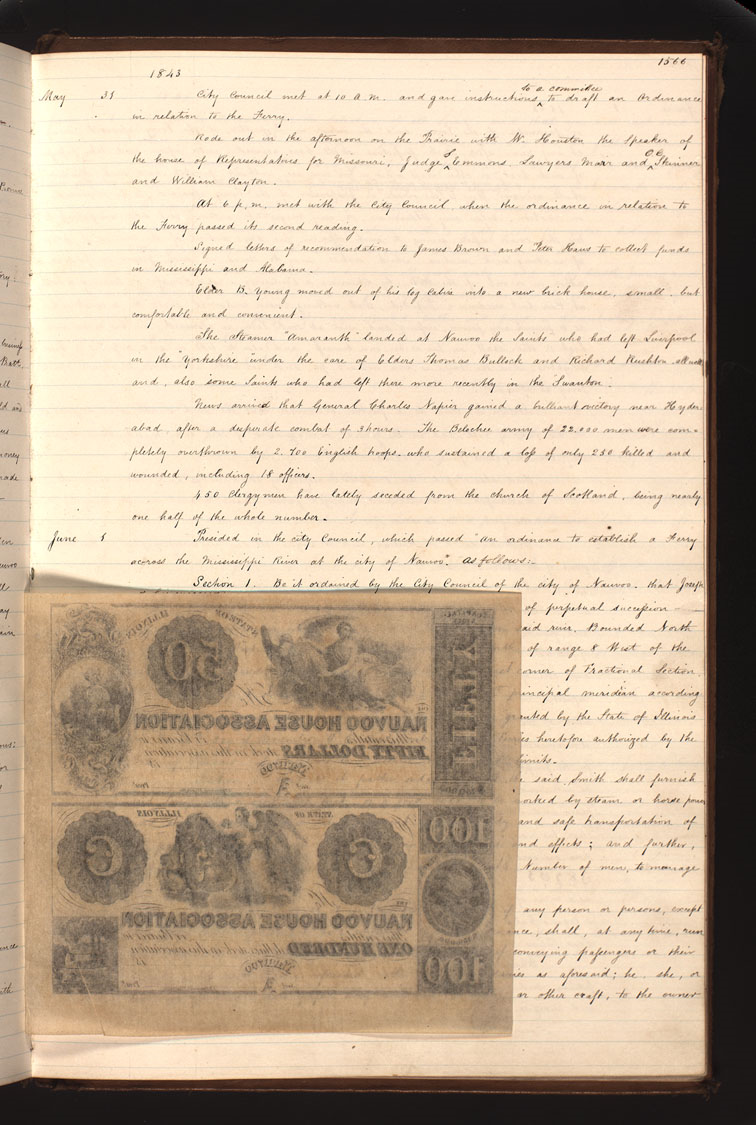 1843
1566
to a committee
May 31 City Council met at 10 A.M. and gave instructions, ^ to draft an Ordinance
in relation to the Ferry.
Rode out in the afternoon on the Prairie with W. Houston the Speaker of
S. O.C.
the house of Representatives for Missouri, Judge ^ Emmons, Lawyers Marr and ^ Skinner
and William Clayton.
At 6 p.m. met with the City Council, when the ordinance in relation to
the Ferry passed its second reading.
Signed letters of recommendation to James Brown and Peter Haws to collect funds
in Mississippi and Alabama.
Elder B. Young moved out of his log cabin into a new brick house, small, but
comfortable and convenient.
The Steamer "Amaranth" landed at Nauvoo the Saints who had left Liverpool
in the "Yorkshire" under the care of Elders Thomas Bullock and Richard Rushton all well
and, also some Saints who had left there more recently in the Swanton.
News arrived that General Charles Napier gained a brilliant victory near Hyder-
abad, after a desperate combat of 3 hours. The Belochee army of 22.000 men were com-
pletely overthrown by 2.700 English troops, who sustained a loss of only 250 killed and
wounded, including 18 officers.
450 Clergymen have lately seceded from the church of Scotland, being nearly
one half of the whole number.
June 1 Presided in the city Council, which passed "An ordinance to establish a Ferry
across the Mississippi River at the city of Nauvoo". As follows:-
Section 1. Be it ordained by the City Council of the city of Nauvoo, that Joseph
of perpetual succession
said river, Bounded North
of range 8 West of the
corner of Fractional Section
principal meridian according
granted by the State of Illinois
heretofore authorized by the
limits.
said Smith shall furnish
worked by steam or horse power
and safe transportation of
and effects; and further,
Number of men, to manage
any person or persons, except
shall, at any time, run
conveying passengers or their
as aforesaid; he, she, or
or other craft, to the owner
STATE OF ILLINOIS
50
FIFTY
NAUVOO HOUSE ASSOCIATION
FIFTY DOLLARS
STATE OF ILLINOIS
100
C
C
NAUVOO HOUSE ASSOCIATION
ONE HUNDRED
100